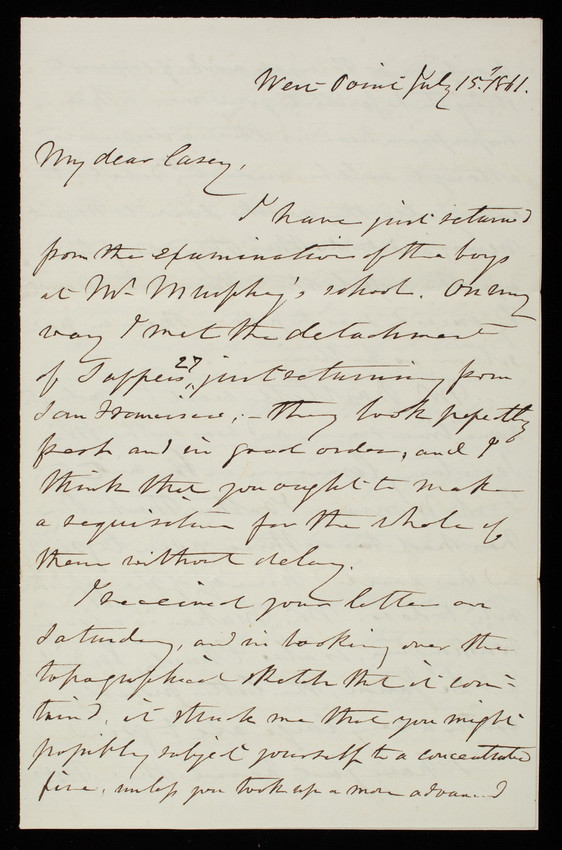 West Point July 15th/1861.
My dear Casey,
I have just returned
from the examination of the boys
at Mr Murphy's school. On my
way I met the detachment
of Sappers, 27, just returning from
San Francisco; – they look perfectly
fresh and in good order, and I
think that you ought to make
a requisition for the whole of
them without delay.
I received your letter on
Saturday, and in looking over the
topographical sketch that it con-
tained, it struck me that you might
possibly subject yourself to a concentrated
fire, unless you took up a more advanced